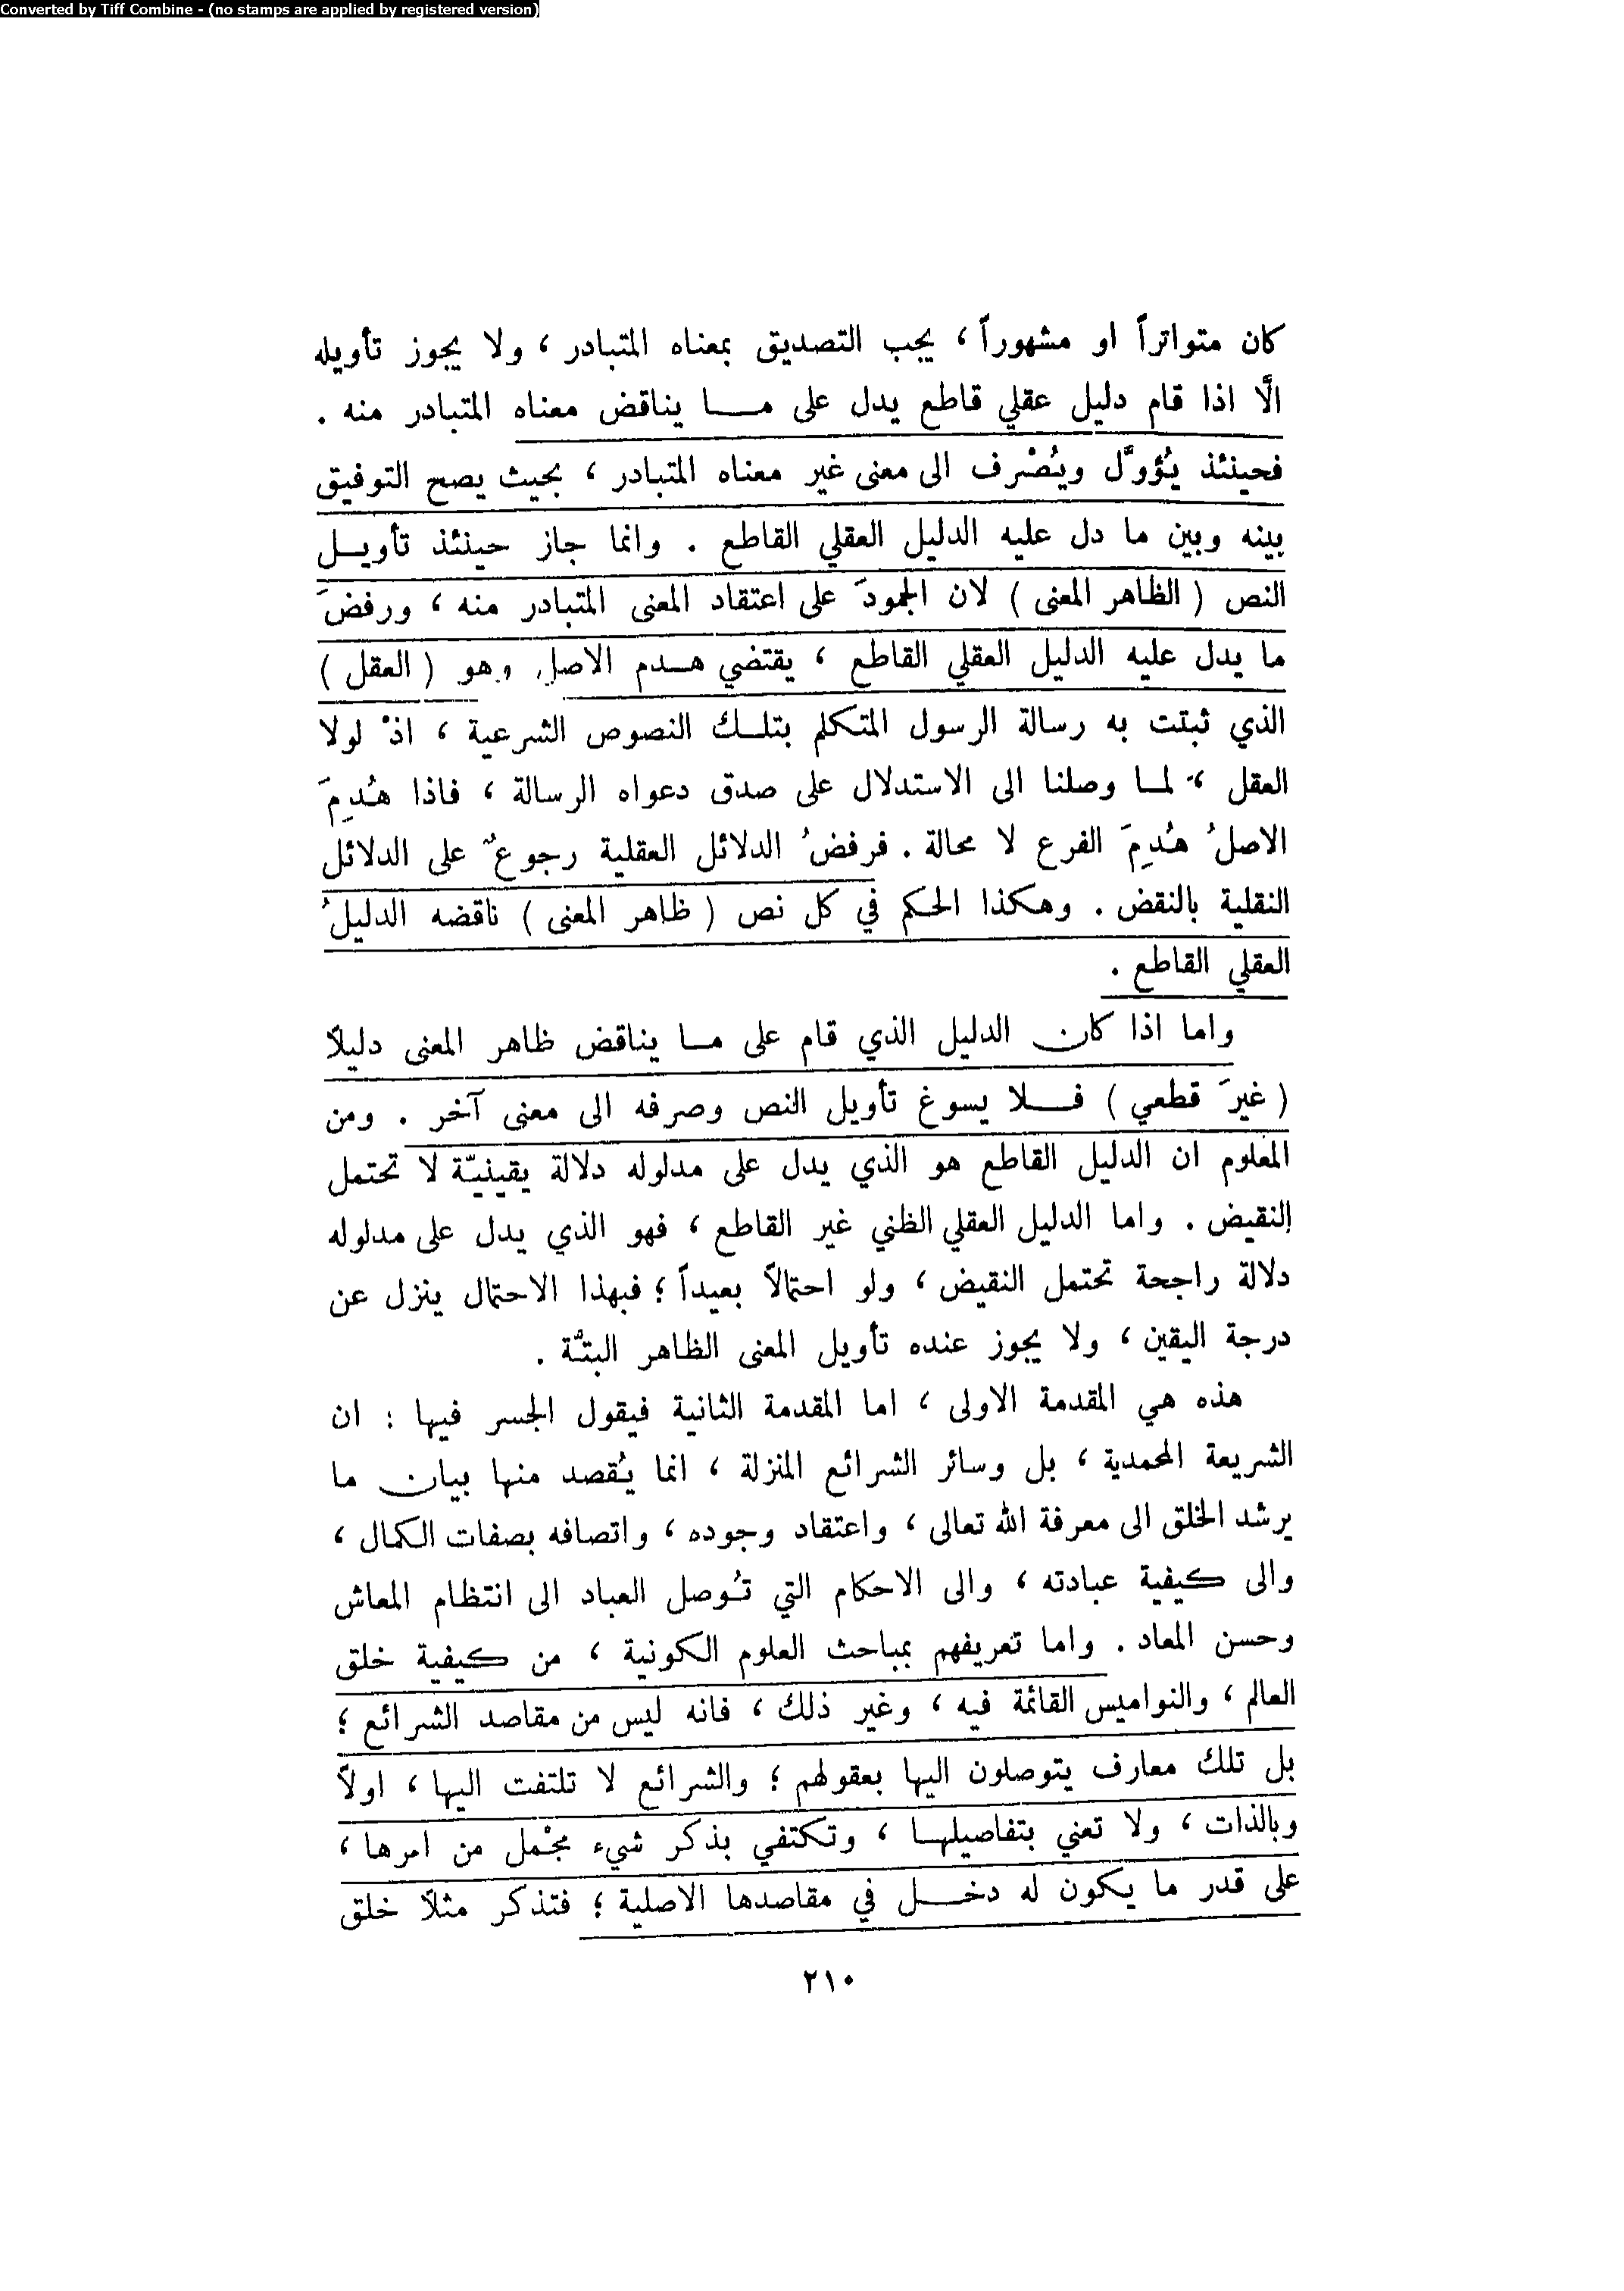 Converted by Tiff Combine - (no stamps are applied by registered version)
كان متواتراً او مشهوراً ، يجب التصديق بمعناه المتبادر ، ولا يجوز تأويله
الَّا اذا قام دليل عقلي قاطع يدل على مـــا يناقض معناه المتبادر منه .
فحينئذ يُؤوَّل ويُصْرف الى معنى غير معناه المتبادر ، بحيث يصح التوفيق
بينه وبين ما دل عليه الدليل العقلي القاطع . وانما جاز حينئذ تأويــل
النص ( الظاهر المعنى ) لان الجمودَ على اعتقاد المعنى المتبادر منه ، ورفضَ
ما يدل عليه الدليل العقلي القاطع ، يقتضي هــدم الاصل وهو ( العقل )
الذي ثبتت به رسالة الرسول المتكلم بتلــك النصوص الشرعية ، اذْ لولا
العقل ، لمــا وصلنا الى الاستدلال على صدق دعواه الرسالة ، فاذا هُدِمَ
الاصلُ هُدِمَ الفرع لا محالة . فرفضُ الدلائل العقلية رجوعٌ على الدلائل
النقلية بالنقض . وهكذا الحكم في كل نص ( ظاهر المعنى ) ناقضه الدليلُ
العقلي القاطع .
واما اذا كان الدليل الذي قام على مــا يناقض ظاهر المعنى دليلاً
( غيرَ قطعي ) فـــلا يسوغ تأويل النص وصرفه الى معنى آخر . ومن
المعلوم ان الدليل القاطع هو الذي يدل على مدلوله دلالة يقينيّة لا تحتمل
النقيض . واما الدليل العقلي الظني غير القاطع ، فهو الذي يدل على مدلوله
دلالة راجحة تحتمل النقيض ، ولو احتمالاً بعيداً ؛ فبهذا الاحتمال ينزل عن
درجة اليقين ، ولا يجوز عنده تأويل المعنى الظاهر البتَّة .
هذه هي المقدمة الاولى ، اما المقدمة الثانية فيقول الجسر فيها : ان
الشريعة المحمدية ، بل وسائر الشرائع المنزلة ، انما يُقصد منها بيان ما
يرشد الخلق الى معرفة الله تعالى ، واعتقاد وجوده ، واتصافه بصفات الكمال ،
والى كيفية عبادته ، والى الاحكام التي تُوصل العباد الى انتظام المعاش
وحسن المعاد . واما تعريفهم بمباحث العلوم الكونية ، من كيفية خلق
العالم ، والنواميس القائمة فيه ، وغير ذلك ، فانه ليس من مقاصد الشرائع ؛
بل تلك معارف يتوصلون اليها بعقولهم ؛ والشرائع لا تلتفت اليها ، اولاً
وبالذات ، ولا تعني بتفاصيلهــا ، وتكتفي بذكر شيء مجْمل من امرها ،
على قدر ما يكون له دخـــل في مقاصدها الاصلية ؛ فتذكر مثلاً خلق
٢١٠